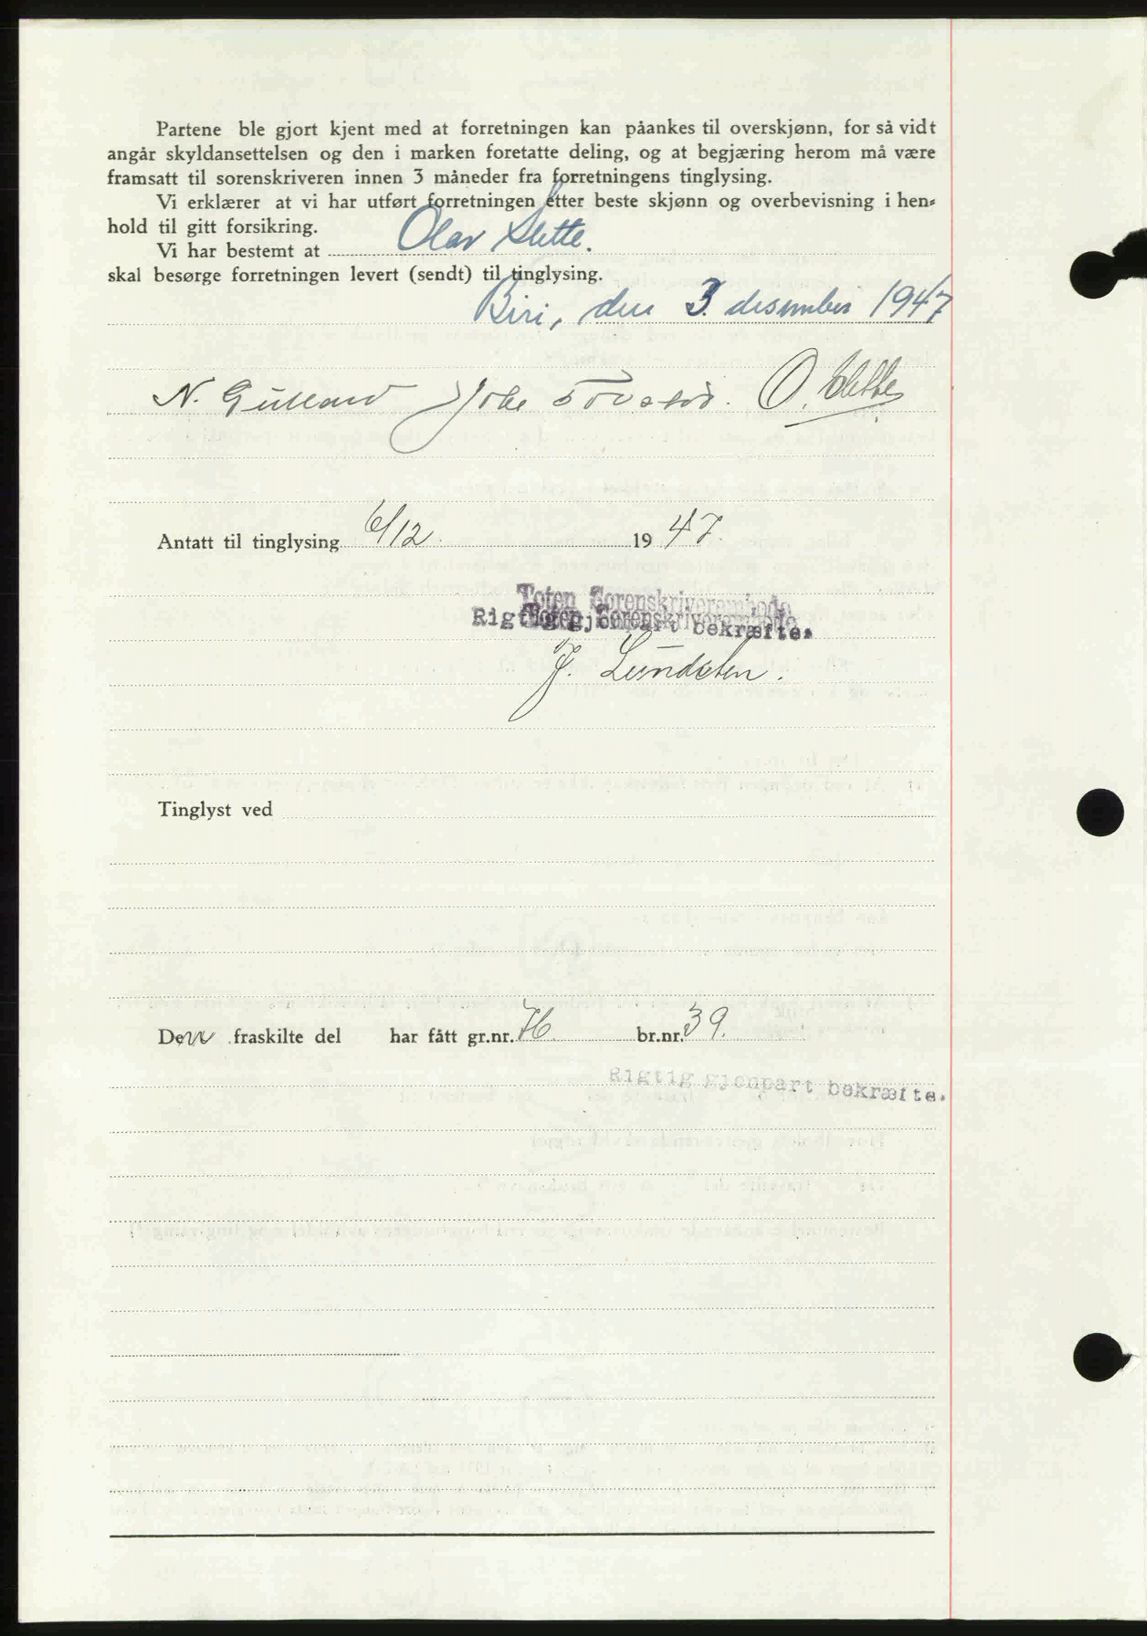 Partene ble gjort kjent med at forretningen kan påankes til overskjønn, for så vidt
angår skyldansettelsen og den i marken foretatte deling, og at begjæring herom må være
framsatt til sorenskriveren innen 3 måneder fra forretningens tinglysing.
Vi erklærer at vi har utført forretningen etter beste skjønn og overbevisning i hen-
hold til gitt forsikring.
Vi har bestemt at Olav Slette.
skal besørge forretningen levert (sendt) til tinglysing.
Biri, den 3. desember 1947
N. O. Slette
Antatt til tinglysing 6/12 1947.
Toten Sorenskriverembede
Toten Sorenskriverembede
Rigtig gjenpart bekræftes
J. Lundsten.
Tinglyst ved
Den fraskilte del har fått gr.nr. 76 br.nr. 39.
Rigtig gjenpart bekræftes